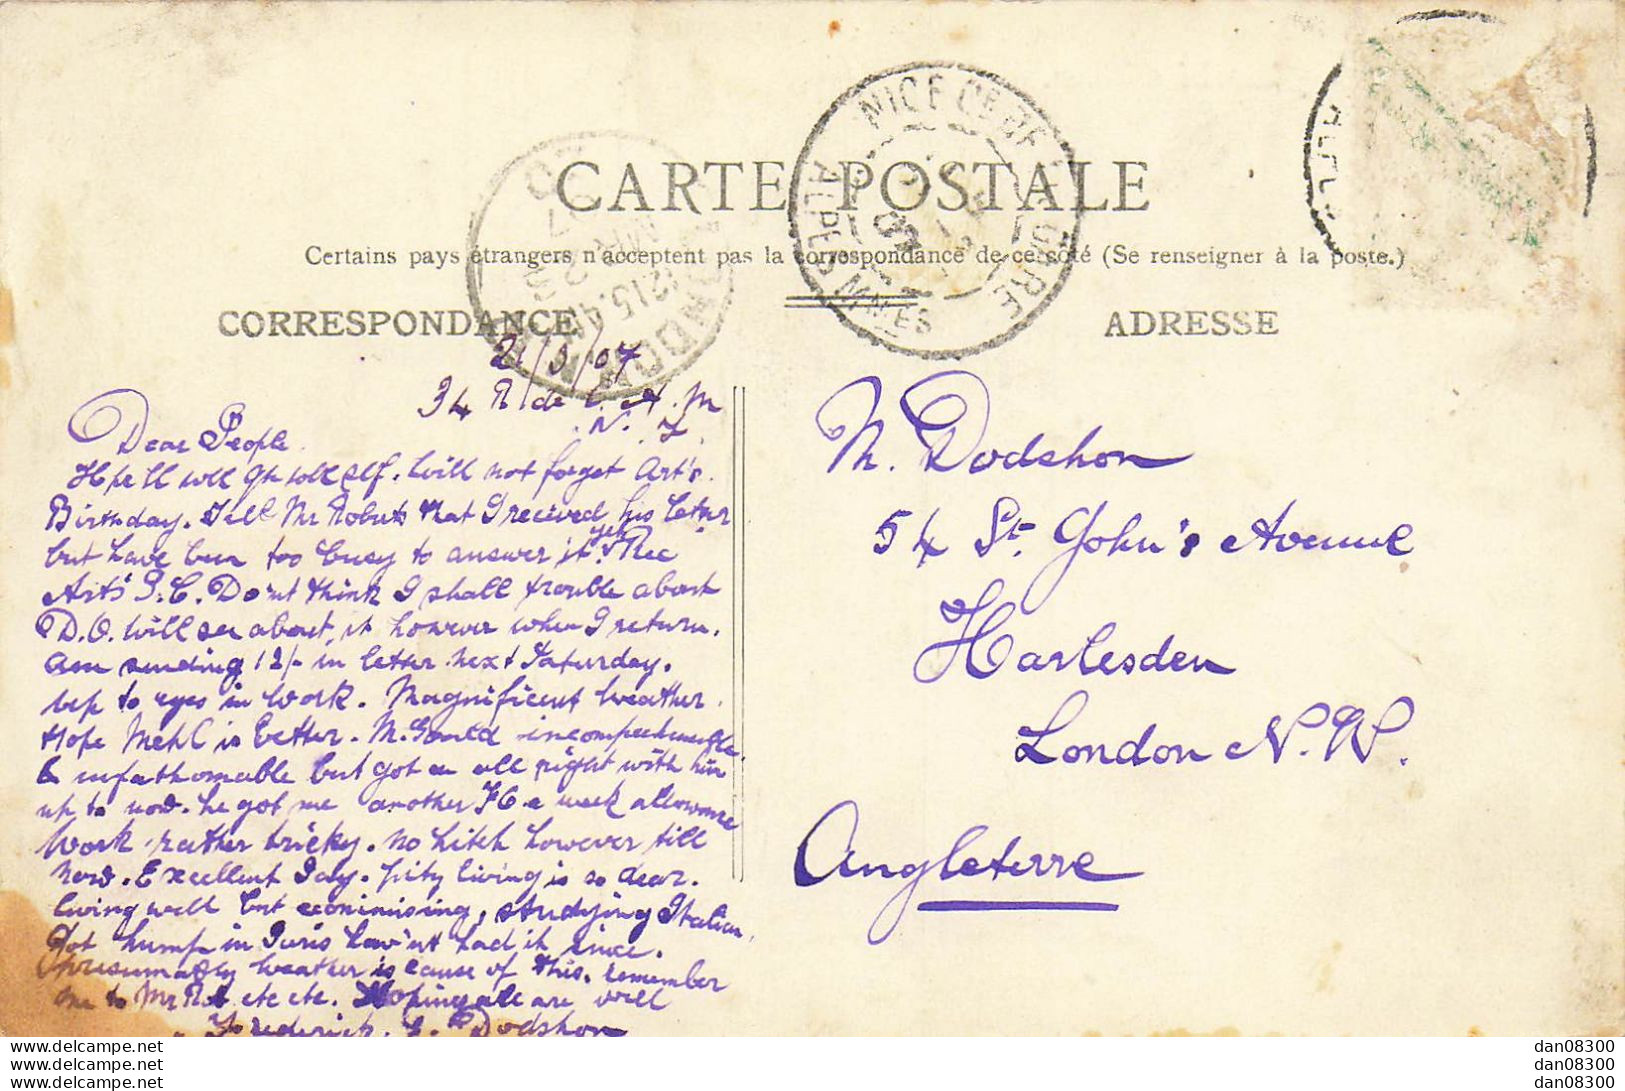 CARTE POSTALE
NICE Ce DE LA GARE
ALPES MMES
LONDON N.W.
12.15.AM
MR 23
07
Certains pays étrangers n'acceptent pas la correspondance de ce côté (Se renseigner à la poste.)
CORRESPONDANCE
ADRESSE
21/3/07
34 R de A. M
N.
Dear People.
Hope all well. Qte well self. Will not forget Art's
Birthday. Tell Mr Roberts that I recieved his letter
but have been too busy to answer it yet. Rec
Art's P.C. Do'nt think I shall trouble about
D.O. Will see about it however when I return.
am sending 12/- in letter next Saturday.
up to eyes in work. Magnificent weather.
Hope Mehl is better. M. Gould incomprehensible
& unfathomable but got on all right with him
up to now. he got me another 7/6 a week allowance
Work rather tricky. no hitch however till
now. Excellent Pay. pity living is so dear.
living well but econimising, studying Italian.
Got hump in Paris hav'nt had it since.
presumably weather is cause of this. remember
me to Mr R. etc etc. Hoping all are well
Frederick. E. Dodshon
M. Dodshon
54 St. John's Avenue
Harlesden
London N.W.
Angleterre
www.delcampe.net
www.delcampe.net
www.delcampe.net
dan08300
dan08300
dan08300